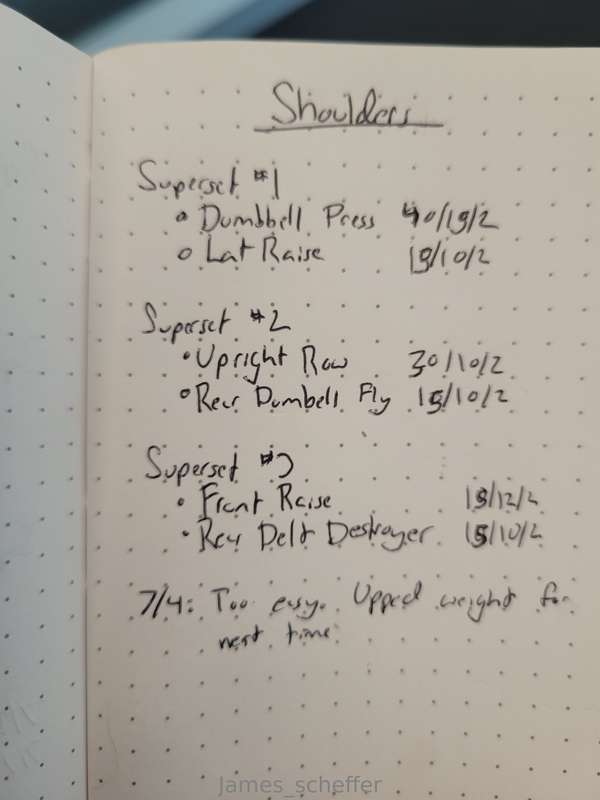 Shoulders
Superset #1
• Dumbbell Press 40/15/2
• Lat Raise 15/10/2
Superset #2
• Upright Row 30/10/2
• Rear Dumbell Fly 15/10/2
Superset #3
• Front Raise 15/12/2
• Rear Delt Destroyer 15/10/2
7/4: Too easy. Upped weight for
next time.
James_scheffer